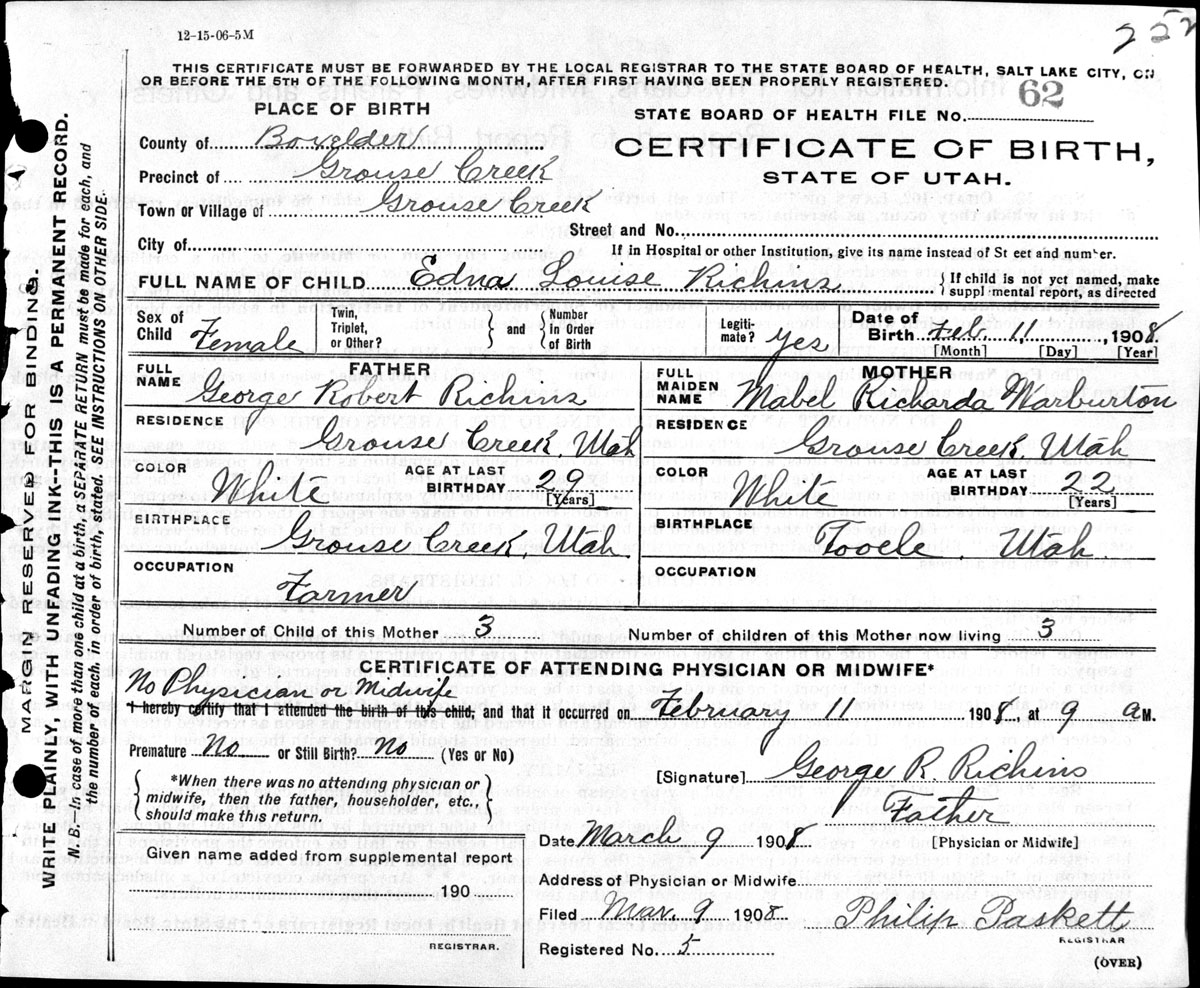 12-15-06-5M
252
THIS CERTIFICATE MUST BE FORWARDED BY THE LOCAL REGISTRAR TO THE STATE BOARD OF HEALTH, SALT LAKE CITY, ON
OR BEFORE THE 5TH OF THE FOLLOWING MONTH, AFTER FIRST HAVING BEEN PROPERLY REGISTERED.
PLACE OF BIRTH
STATE BOARD OF HEALTH FILE No. 62
County of Bowelder
CERTIFICATE OF BIRTH,
Precinct of Grouse Creek
STATE OF UTAH.
Town or Village of Grouse Creek
Street and No.
City of
If in Hospital or other Institution, give its name instead of St eet and number.
FULL NAME OF CHILD Edna Louise Richins { If child is not yet named, make
suppl mental report, as directed
Sex of Child Female
Twin, Triplet, or Other? } and { Number in Order of Birth
Legiti-mate? yes
Date of Birth Feb. 11, 1908.
[Month] [Day] [Year]
FATHER
FULL NAME George Robert Richins
RESIDENCE Grouse Creek, Utah
COLOR White
AGE AT LAST BIRTHDAY 29
[Years]
BIRTHPLACE Grouse Creek, Utah.
OCCUPATION Farmer
MOTHER
FULL MAIDEN NAME Mabel Richarda Warburton
RESIDENCE Grouse Creek, Utah
COLOR White
AGE AT LAST BIRTHDAY 22
[Years]
BIRTHPLACE Tooele Utah.
OCCUPATION
Number of Child of this Mother 3 Number of children of this Mother now living 3
CERTIFICATE OF ATTENDING PHYSICIAN OR MIDWIFE*
No Physician or Midwife
I hereby certify that I attended the birth of this child, and that it occurred on February 11 1908, at 9 a M.
Premature No or Still Birth? No (Yes or No)
*When there was no attending physician or
midwife, then the father, householder, etc.,
should make this return.
[Signature] George R. Richins
Father
[Physician or Midwife]
Date March 9 1908
Given name added from supplemental report
190
REGISTRAR.
Address of Physician or Midwife
Filed Mar. 9 1908 Philip Paskett
REGISTRAR
Registered No. 5
(OVER)
MARGIN RESERVED FOR BINDING.
WRITE PLAINLY, WITH UNFADING INK-THIS IS A PERMANENT RECORD.
N. B.—In case of more than one child at a birth, a SEPARATE RETURN must be made for each, and
the number of each, in order of birth, stated. SEE INSTRUCTIONS ON OTHER SIDE.